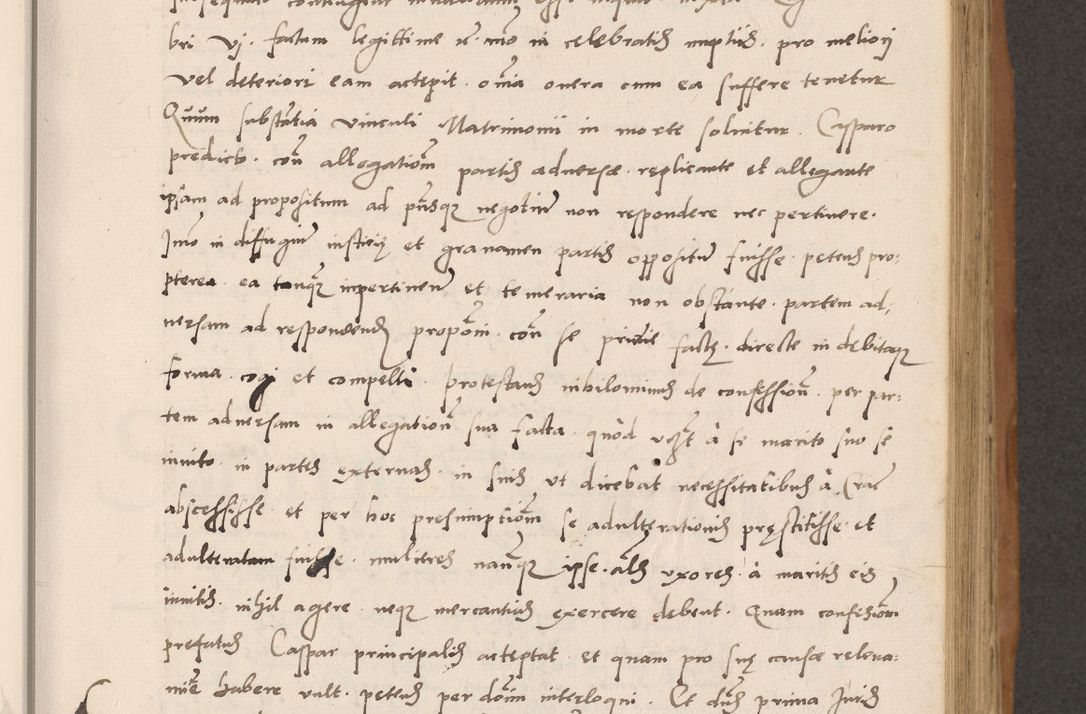 bri vj. factum legittime et imo in celebratis nuptiis. pro meliorj
vel deteriori eam acteptit. omnia onera cum ea suffere tenetur
Quum substantia vinculi Matrimonii in morte solvitur. Casparo
predicto. contra allegationem partis adverse. replicante et allegante
ipsam ad propositum ad presensque negotium non respondere nec pertinere.
Imo in diffugium iusticie et gravamen partis oppositum fuisse. petens pro:
pterea. ea tanquam impertinentem et temeraria non obstante. partem ad,
versam ad respondendum propositioni. contra se pridie factae. directe in debitaque
forma. cogi et compelli. protestans nihilominus de confessione. per par:
tem adversam in allegatione sua facta. quòd à se marito suo se
invito. in partes externas. in suis ut dicebat necessitatibus à Crac
abscessisse. et per hoc presumptionem se adulterationis pręstitisse. et
adulteratam fuisse. mulieres nanque ipse. alias uxores. à maritis eis
invitis. nihil agere. neque mercantias exercere debent. Quam confessionem
prefatus Caspar principalis acteptat. et quam pro suę causae releva:
mine habere vult. petens per dominum interloqui. Et dominus prima Juris